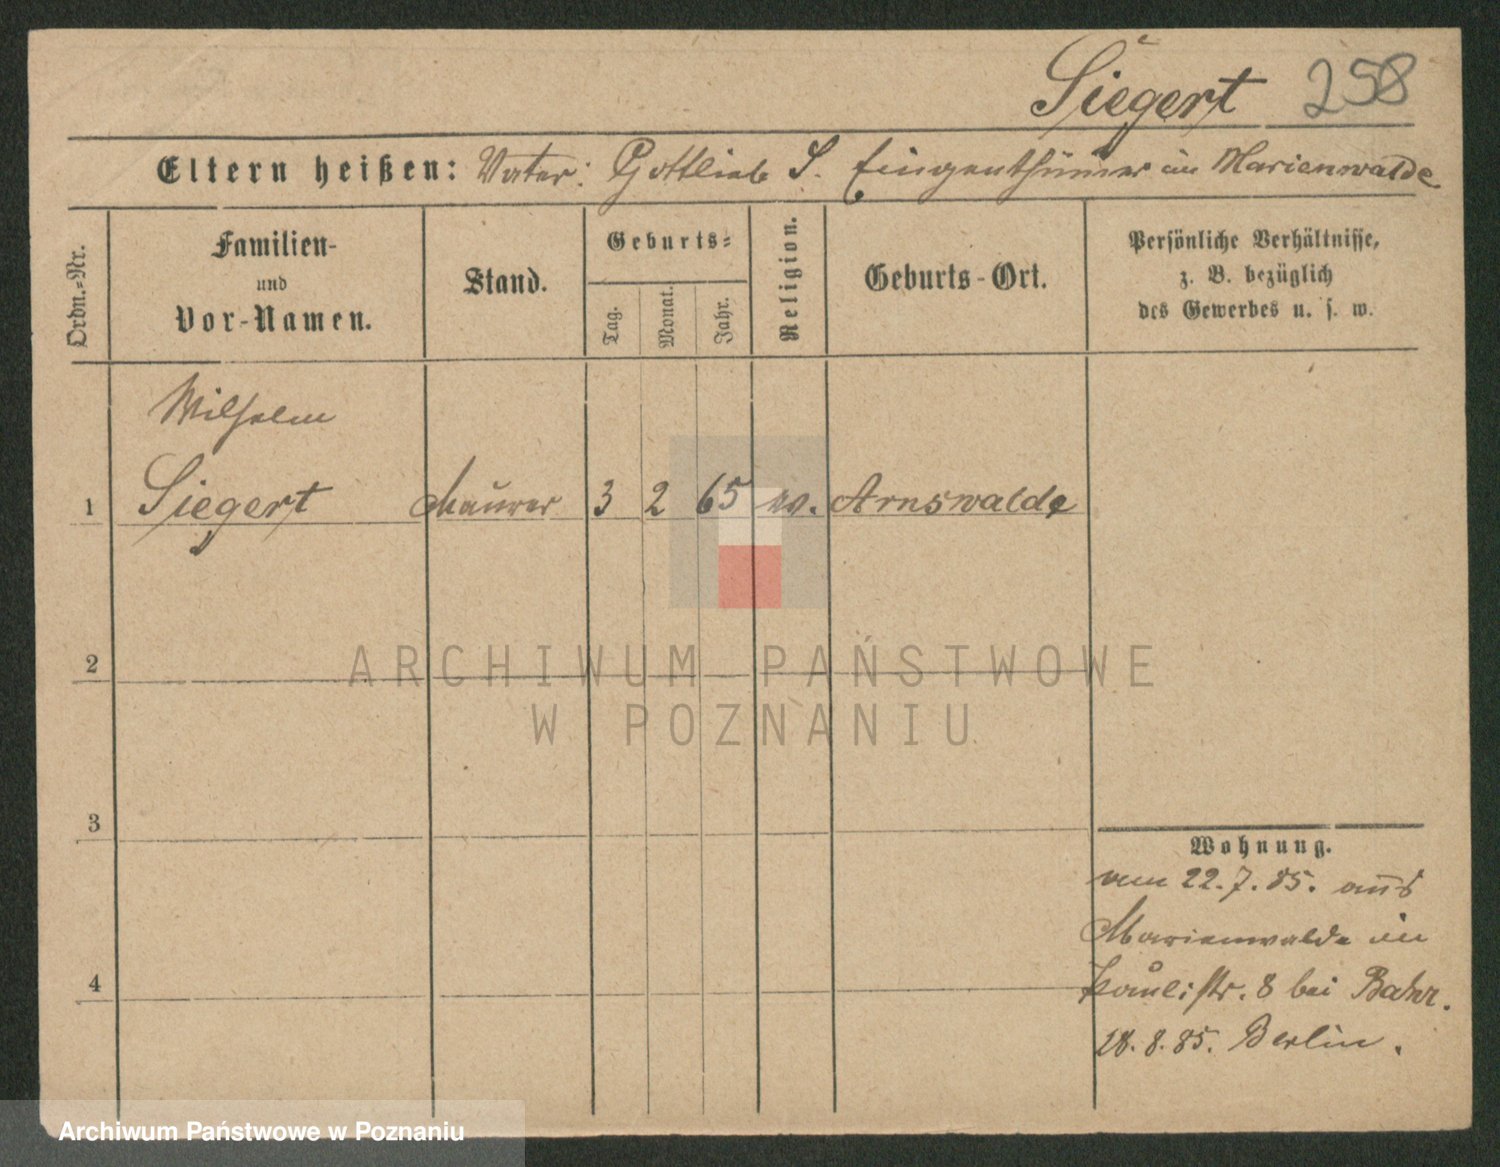 Siegert 258
Eltern heißen: Vater: Gottlieb S. Eingenthümer in Marienwalde
Ordn.=Nr.
Familien-
und
Vor-Namen.
Stand.
Geburts=
Tag.
Monat.
Jahr.
Religion.
Geburts-Ort.
Persönliche Verhältnisse,
z. B. bezüglich
des Gewerbes u. s. w.
Wilhelm
1 Siegert Maurer 3 2 65 ev. Arnswalde
2
ARCHIWUM PAŃSTWOWE
W POZNANIU
3
Wohnung.
vom 22.7.85. aus
Marienwalde in
Paulistr. 8 bei Bahr.
4
28.8.85. Berlin.
Archiwum Państwowe w Poznaniu